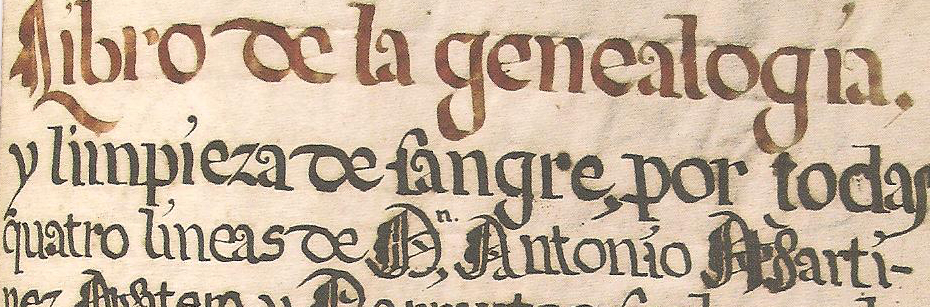 Libro de la genealogia.
y limpieza de sangre, por todas
quatro lineas de D.n Antonio Marti-
nez